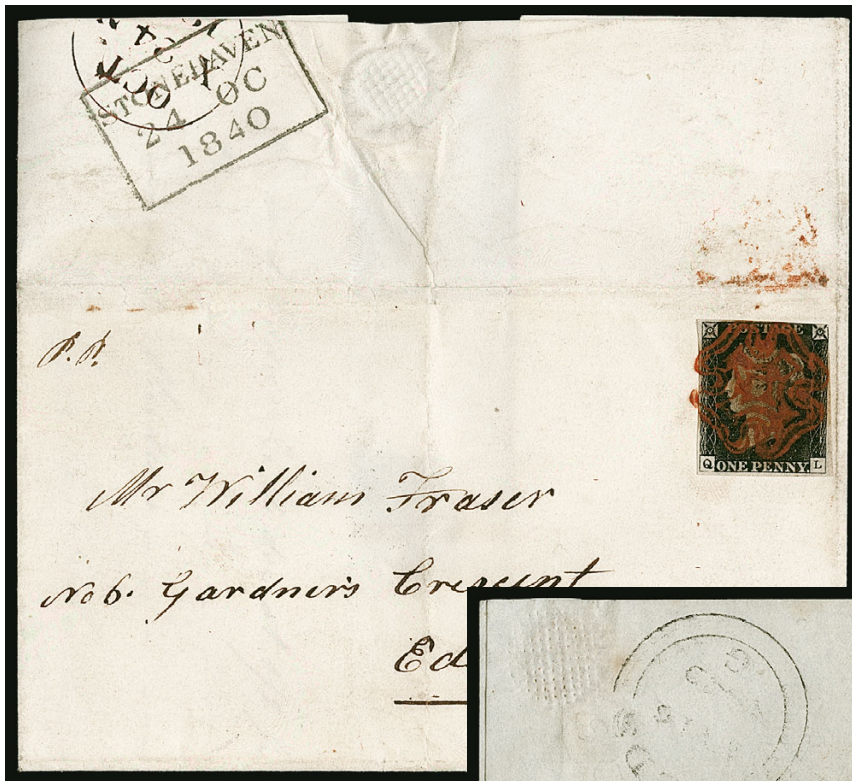 STONEHAVEN
24 OC
1840
P.P.
POSTAGE
Q ONE PENNY L
Mr William Fraser
No 6. Gardner's Crescent
Ed